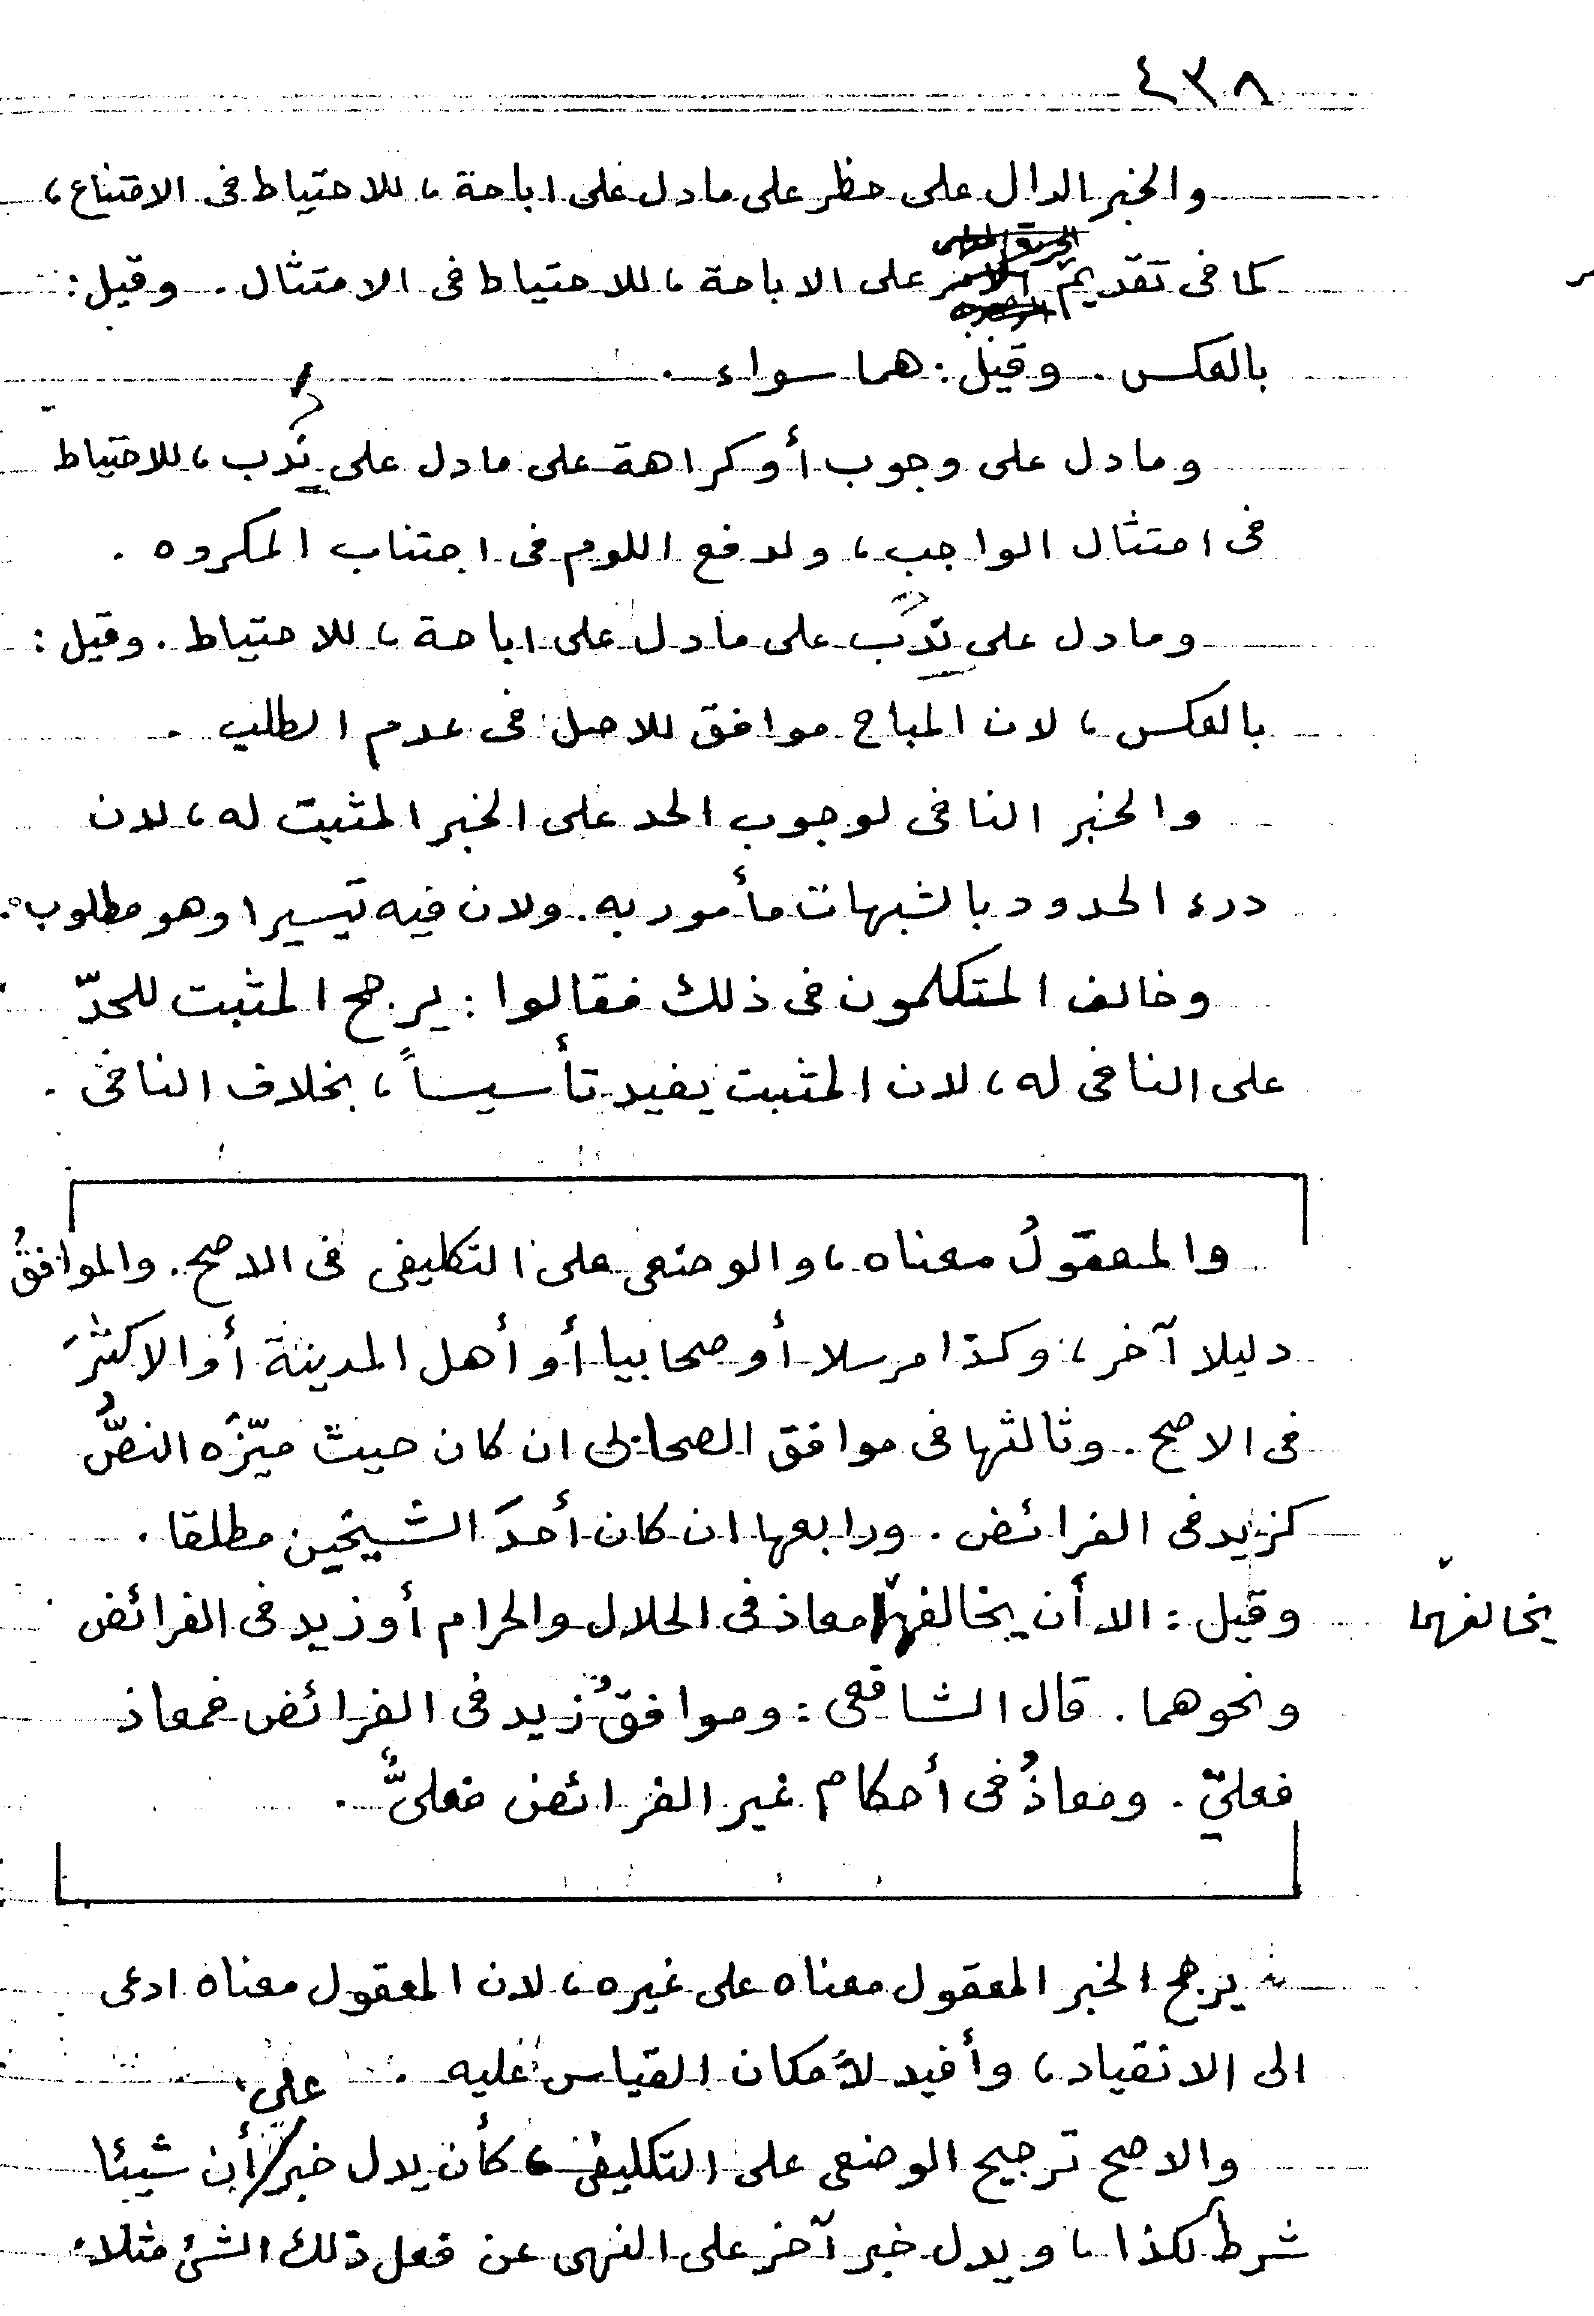 ٤٣٨
والخبر الدال على حظر على ما دل على اباحة، للاحتياط فى الامتناع،
كما فى تقديم الامر على الاباحة، للاحتياط فى الامتثال. وقيل:
بالعكس. وقيل: هما سواء.
وما دل على وجوب أو كراهة على ما دل على ندب، للاحتياط
فى امتثال الواجب، ولدفع اللوم فى اجتناب المكروه.
وما دل على ندب على ما دل على اباحة، للاحتياط. وقيل:
بالعكس، لان المباح موافق للاصل فى عدم الطلب.
والخبر النافى لوجوب الحد على الخبر المثبت له، لان
درء الحدود بالشبهات مأمور به. ولان فيه تيسيرا وهو مطلوب.
وخالف المتكلمون فى ذلك فقالوا: يرجح المثبت للحدّ
على النافى له، لان المثبت يفيد تأسيساً، بخلاف النافى.
والمعقولُ معناه، والوضعى على التكليفى فى الاصح. والموافقُ
دليلا آخر، وكذا مرسلا أو صحابيا أو أهل المدينة أو الاكثرَ
فى الاصح. وثالثها فى موافق الصحابى ان كان حيث ميّزَه النصُّ
كزيد فى الفرائض. ورابعها ان كان أحدَ الشيخين مطلقا.
وقيل: الا أن يخالفهما معاذ فى الحلال والحرام أو زيد فى الفرائض
يخالفهما
ونحوهما. قال الشافعى: وموافقُ زيد فى الفرائض فمعاذ
فعليّ. ومعاذُ فى أحكام غير الفرائض فعليٌّ.
يرجح الخبر المعقول معناه على غيره، لان المعقول معناه ادعى
الى الانقياد، وأفيد لامكان القياس عليه.
والاصح ترجيح الوضعى على التكليفى، كأن يدل خبر على أن شيئا
شرط لكذا، ويدل خبر آخر على النهى عن فعل ذلك الشئ مثلا